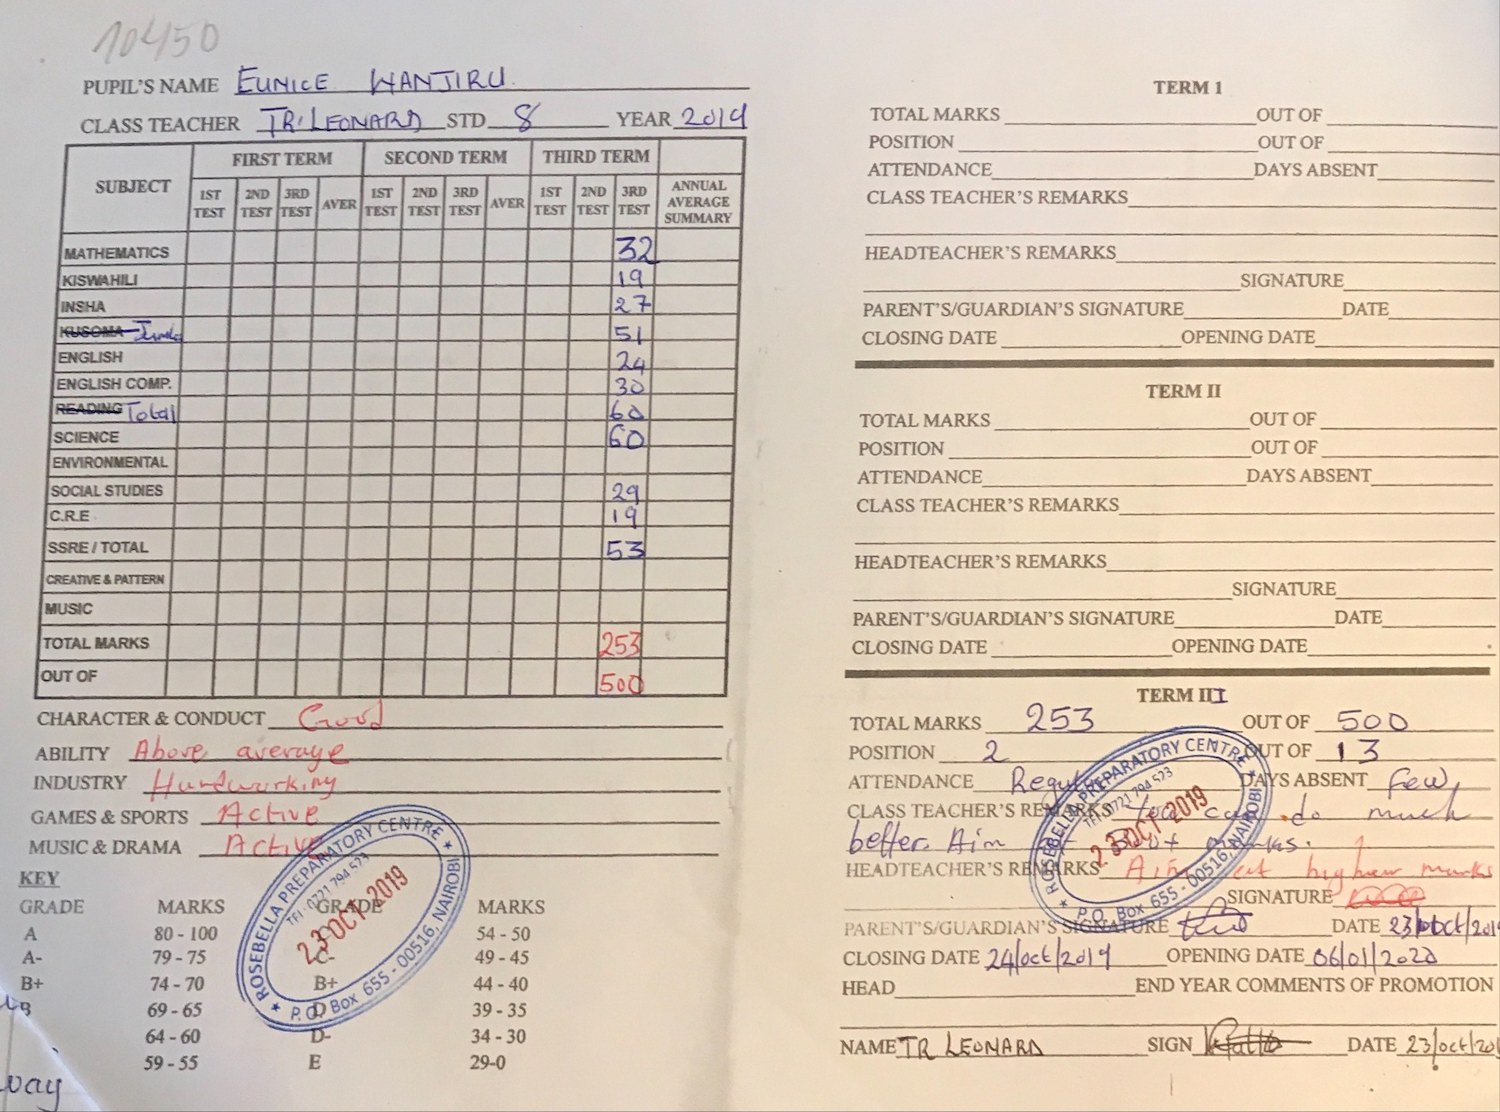 10450
PUPIL'S NAME EUNICE WANJIRU.
CLASS TEACHER TR. LEONARD STD 8 YEAR 2019
SUBJECT FIRST TERM SECOND TERM THIRD TERM
1ST TEST 2ND TEST 3RD TEST AVER 1ST TEST 2ND TEST 3RD TEST AVER 1ST TEST 2ND TEST 3RD TEST ANNUAL AVERAGE SUMMARY
MATHEMATICS 32
KISWAHILI 19
INSHA 27
KUSOMA 51
ENGLISH 24
ENGLISH COMP. 30
READING Total 60
SCIENCE 60
ENVIRONMENTAL
SOCIAL STUDIES 29
C.R.E 19
SSRE / TOTAL 53
CREATIVE & PATTERN
MUSIC
TOTAL MARKS 253
OUT OF 500
CHARACTER & CONDUCT Good
ABILITY Above average
INDUSTRY Hardworking
GAMES & SPORTS Active
MUSIC & DRAMA Active
KEY
GRADE MARKS GRADE MARKS
A 80 - 100 54 - 50
A- 79 - 75 C- 49 - 45
B+ 74 - 70 B+ 44 - 40
B 69 - 65 D 39 - 35
64 - 60 D- 34 - 30
59 - 55 E 29-0
way
ROSEBELLA PREPARATORY CENTRE
0721 794 523
23 OCT 2019
P.O. Box 655 - 00516, NAIROBI
TERM 1
TOTAL MARKS OUT OF
POSITION OUT OF
ATTENDANCE DAYS ABSENT
CLASS TEACHER'S REMARKS
HEADTEACHER'S REMARKS
SIGNATURE
PARENT'S/GUARDIAN'S SIGNATURE DATE
CLOSING DATE OPENING DATE
TERM II
TOTAL MARKS OUT OF
POSITION OUT OF
ATTENDANCE DAYS ABSENT
CLASS TEACHER'S REMARKS
HEADTEACHER'S REMARKS
SIGNATURE
PARENT'S/GUARDIAN'S SIGNATURE DATE
CLOSING DATE OPENING DATE
TERM III
TOTAL MARKS 253 OUT OF 500
POSITION 2 OUT OF 13
ATTENDANCE Regular DAYS ABSENT few
CLASS TEACHER'S REMARKS You can do much
better. Aim marks.
HEADTEACHER'S REMARKS Aim at higher marks
SIGNATURE
PARENT'S/GUARDIAN'S SIGNATURE DATE 23/oct/201
CLOSING DATE 24/oct/2019 OPENING DATE 06/01/2020
HEAD END YEAR COMMENTS OF PROMOTION
NAME TR LEONARD SIGN DATE 23/oct/201
ROSEBELLA PREPARATORY CENTRE
0721 794 523
23 OCT 2019
P.O. Box 655 - 00516, NAIROBI